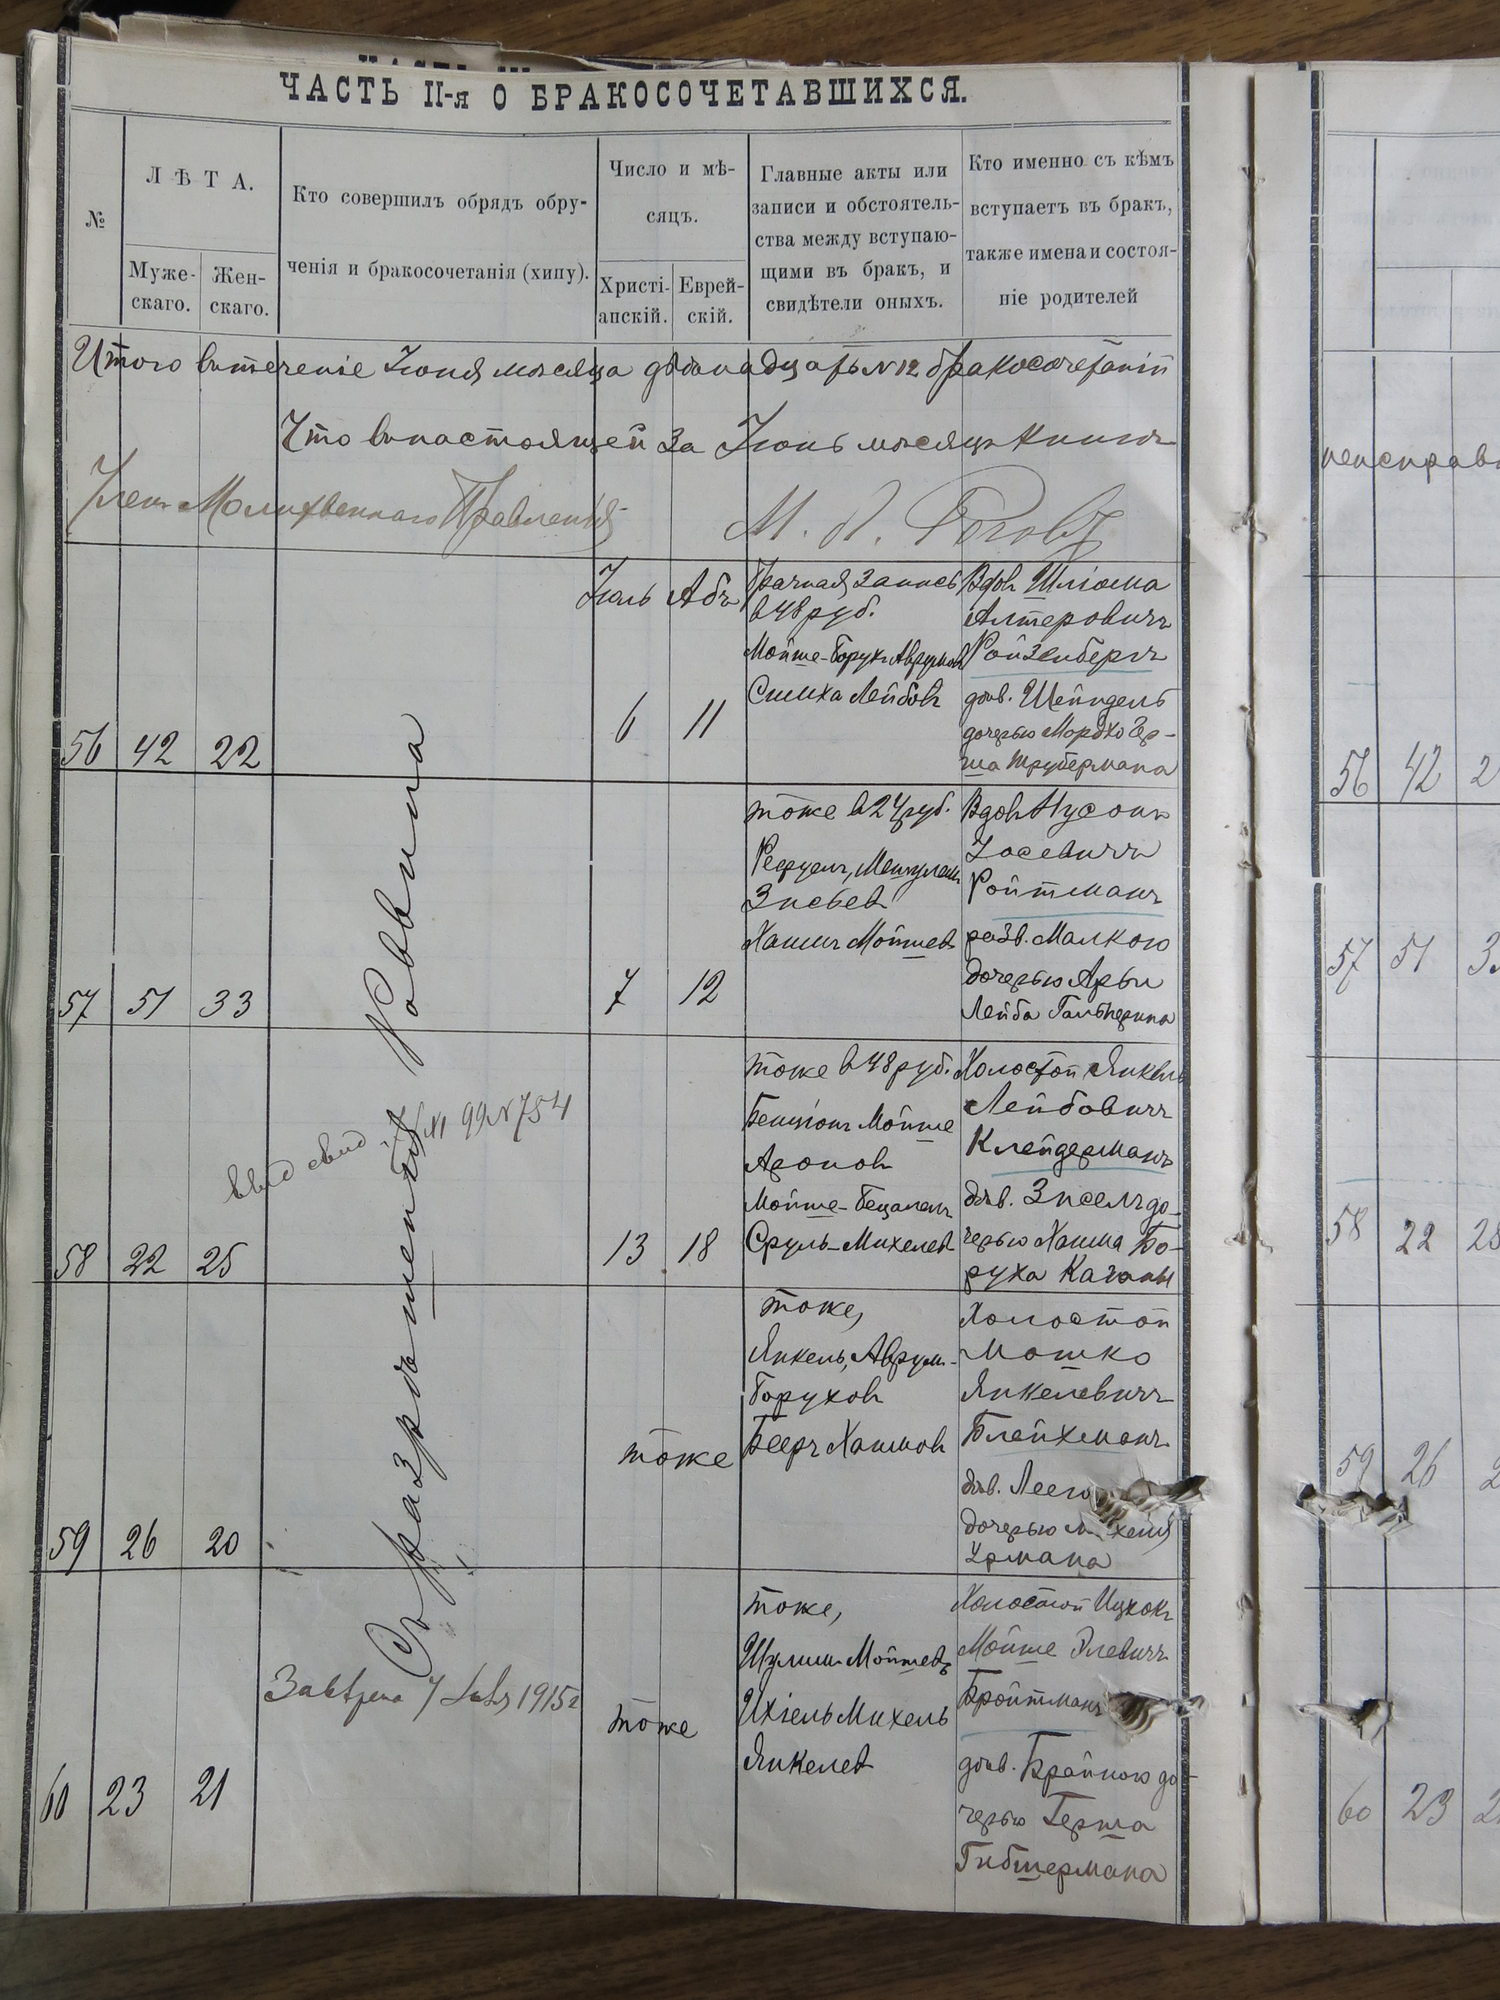 ЧАСТЬ II-я О БРАКОСОЧЕТАВШИХСЯ.
№
ЛѢТА.
Муже-
скаго.
Жен-
скаго.
Кто совершилъ обрядъ обру-
ченія и бракосочетанія (хипу).
Число и мѣ-
сяцъ.
Христі-
анскій.
Еврей-
скій.
Главные акты или
записи и обстоятель-
ства между вступаю-
щими въ бракъ, и
свидѣтели оныхъ.
Кто именно съ кѣмъ
вступаетъ въ бракъ,
также имена и состоя-
ніе родителей
Итого втеченіе Іюня мѣсяца двѣнадцать №12 бракосочетаній
Что внастоящей за Іюнь мѣсяцъ книгѣ
Членъ Молитвеннаго Правленія
Съ разрѣшенія Раввина
56 42 22
Іюль Абъ
6 11
Брачная запись
в 48 руб.
Мойше-Борухъ Аврумовъ
Симха Лейбовъ
Вдов Шліома
Алтеровичъ
Ройзенбергъ
дѣв. Шейндель
дочерью Мордко Гер-
ша Трубермана
57 51 33
7 12
тоже в 24 руб.
Рефуелъ, Мешулемъ
Зисьевъ
Хаимъ Мойшевъ
Вдов Нусонъ
Іосевичъ
Ройтманъ
разв. Малкою
дочерью Арыи
Лейба Гальперина
58 22 25
13 18
тоже в 48 руб.
Бенціонъ Мойше
Ароновъ
Мойше-Бецалелъ
Сруль-Михелев
Холостой Янкель
Лейбовичъ
Клейдерманъ
дѣв. Зиселъ до-
черью Хаима Бо-
руха Каганы
№ 99 № 754
59 26 20
тоже
тоже,
Янкель, Аврум-
Борухов
Бееръ Хаимов
Холостой
Мошко
Янкелевичъ
Блейхманъ
дѣв. Леею
дочерью
Урмана
60 23 21
1915г
тоже
тоже,
Шулим Мойшевъ
Ихіель Михель
Янкелев
Холостой Ицхокъ
Мойше Элевичъ
Бройтманъ
дѣв. Брайною до-
черью Герша
Гибшермана
неисправ
56 42 2
57 51 3
58 22 25
59 26 2
60 23 2